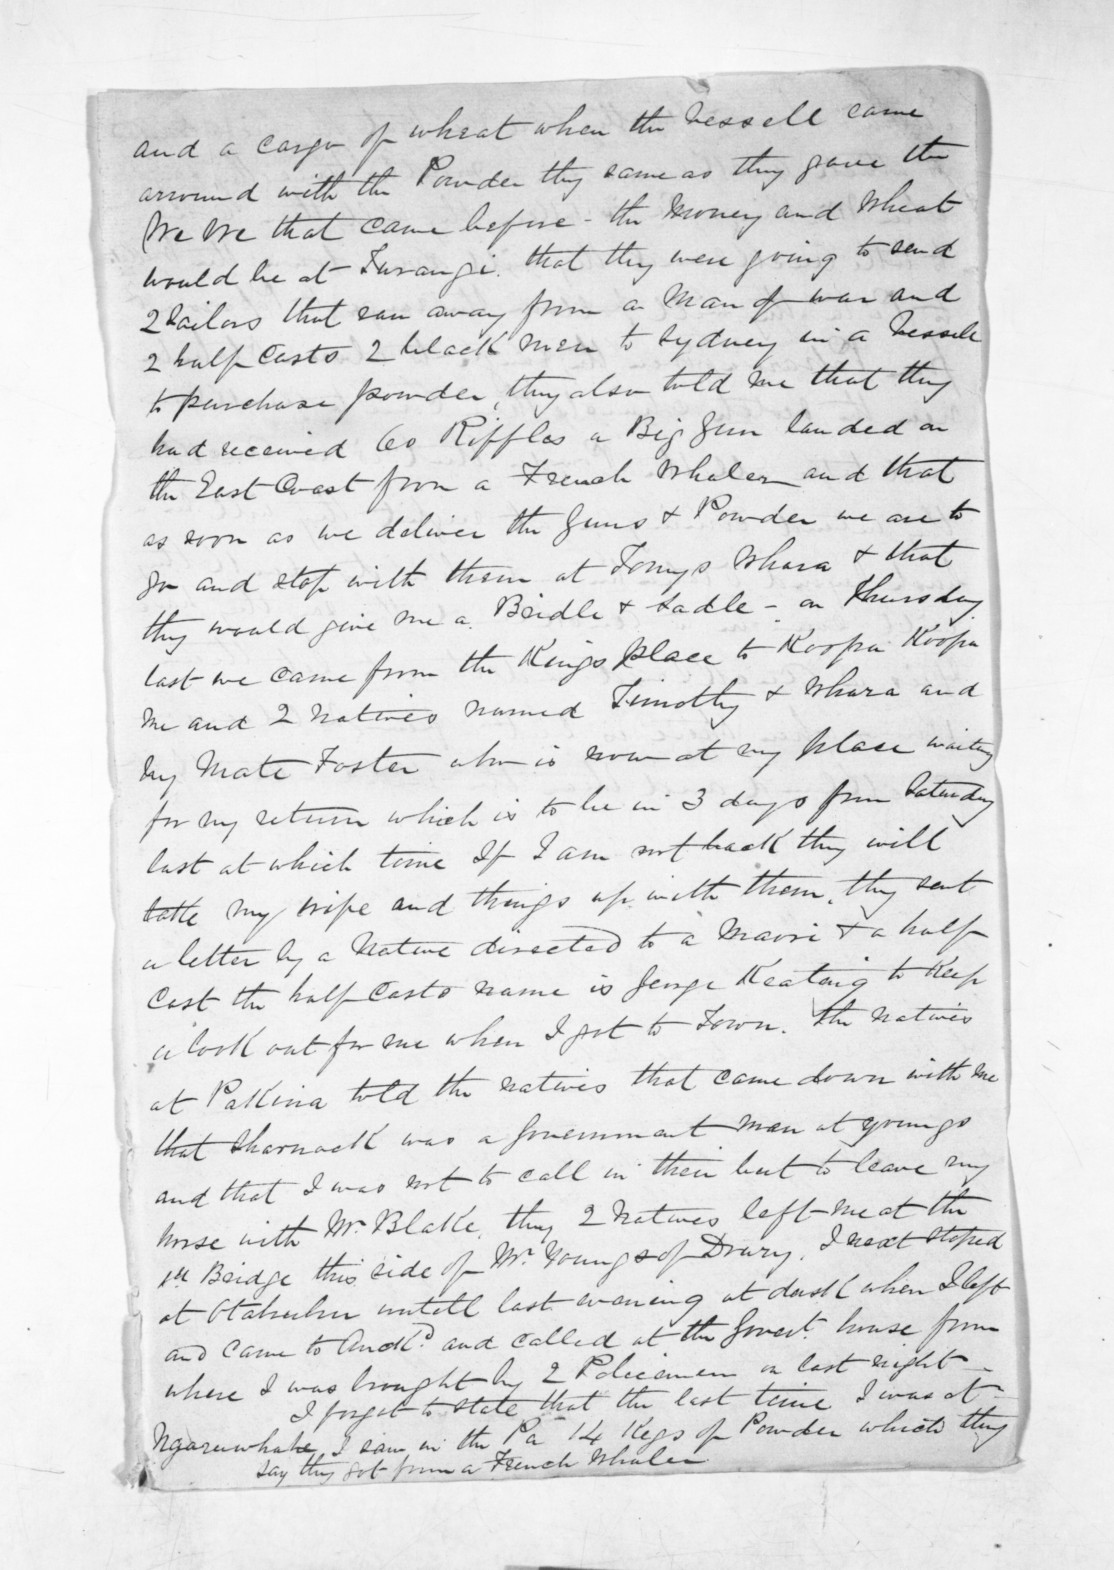 and a cargo of wheat when the vessell came
arround with the Powder they same as they gave the
We We that came before - the money and wheat
would be at Turangi. that they were going to send
2 sailors that ran away from a man of war and
2 half casts 2 black men to Sydney in a vessell
to purchase powder, they also told me that they
had received 60 Riffles a Big Gun landed on
the East Coast from a French Whaler and that
as soon as we deliver the Guns & Powder we are to
go and stop with them at Tomys Whara & that
they would give me a Bridle & Sadle - on Thursday
last we came from the Kings place to Koopa Koopa
me and 2 natives named Timothy & Whara and
my Mate Foster who is now at my place waiting
for my return which is to be in 3 days from Saturday
last at which time If I am not back they will
take my wife and things up with them, they sent
a letter by a Native directed to a Maori & a half
cast the half casts name is George Keating to keep
a look out for me when I got to Town. the natives
at Pakina told the natives that came down with me
that Sharnack was a Government man at youngs
and that I was not to call in their but to leave my
horse with Mr. Blake, they 2 Natives left me at the
1st Bridge this side of Mr. Youngs of Drury. I next stoped
at Otahuhu untell last evening at dusk when I left
and came to Auckd. and called at the Govert. house from
where I was brought by 2 Policemen on last night -
I forgot to state that the last time I was at
Ngaruwhahe I saw in the Pa 14 Kegs of Powder which they
say they got from a French Whaler